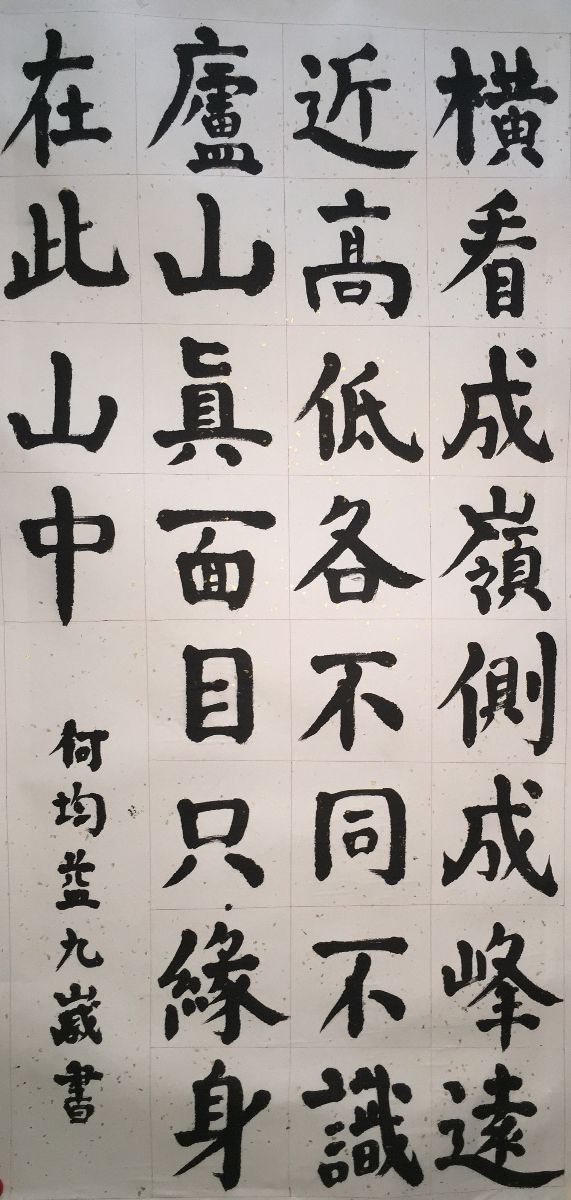 橫看成嶺側成峰遠
近高低各不同不識
廬山眞面目只緣身
在此山中
何均益九歲書